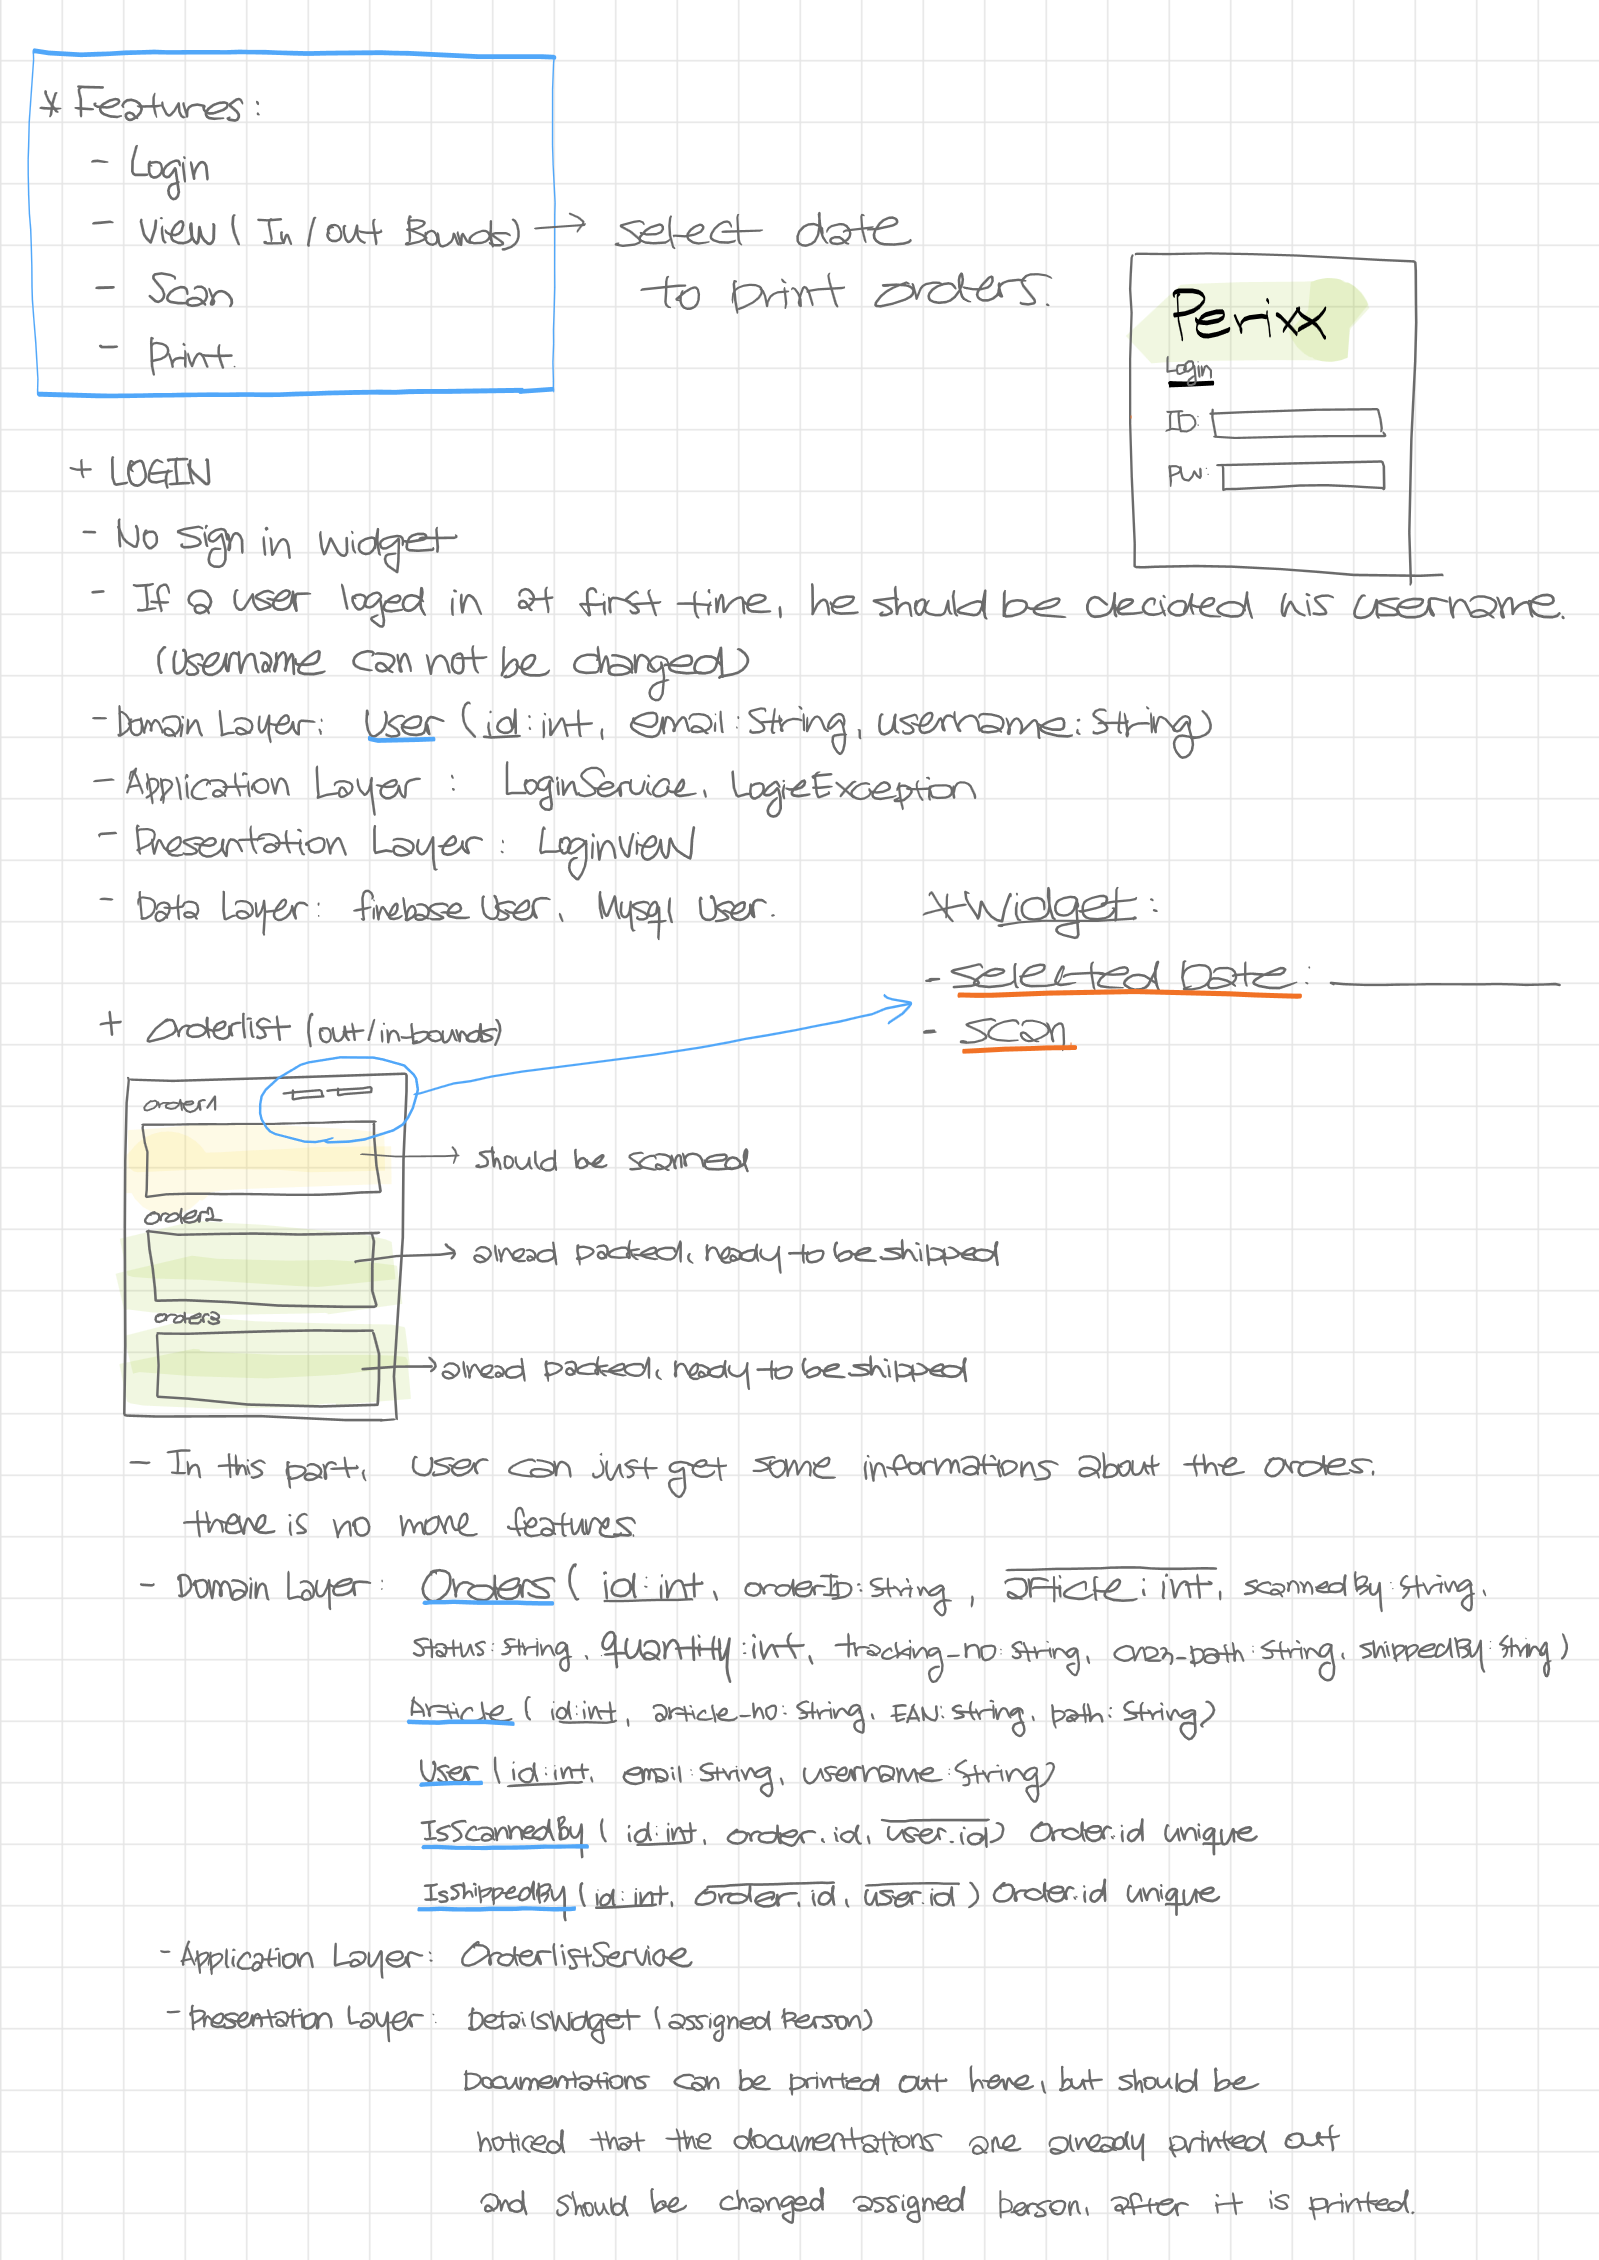 * Features:
- Login
- View ( In / out Bounds) → select date
to print orders.
- Scan
- Print.
Perixx
Login
ID:
PW:
+ LOGIN
- No sign in widget
- If a user loged in at first time, he should be decided his username.
(username can not be changed)
- Domain Layer: User ( id:int, email:String, username:String)
- Application Layer : LoginService,
- Presentation Layer : LoginView
- Data Layer: firebase User, Mysql User.
* Widget:
- Selected Date:
- Scan
+ Orderlist (out/in-bounds)
order1
→ should be scanned
order2
→ alread packed, ready to be shipped
order3
→ alread packed, ready to be shipped
- In this part, user can just get some informations about the ordes.
there is no more features.
- Domain Layer: Orders ( id:int, orderID:String, article:int, scannedBy:String,
Status:String, quantity:int, tracking_no:String, :String, shippedBy:String)
Article ( id:int, article_no:String, EAN:String, path:String)
User (id:int, email:String, username:String)
IsScannedBy ( id:int, order.id, user.id) Order.id unique
IsShippedBy (id:int, order.id, user.id ) Order.id unique
- Application Layer: OrderlistService
- Presentation Layer: DetailsWidget (assigned Person)
Documentations can be printed out here, but should be
noticed that the documentations are already printed out
and should be changed assigned person, after it is printed.